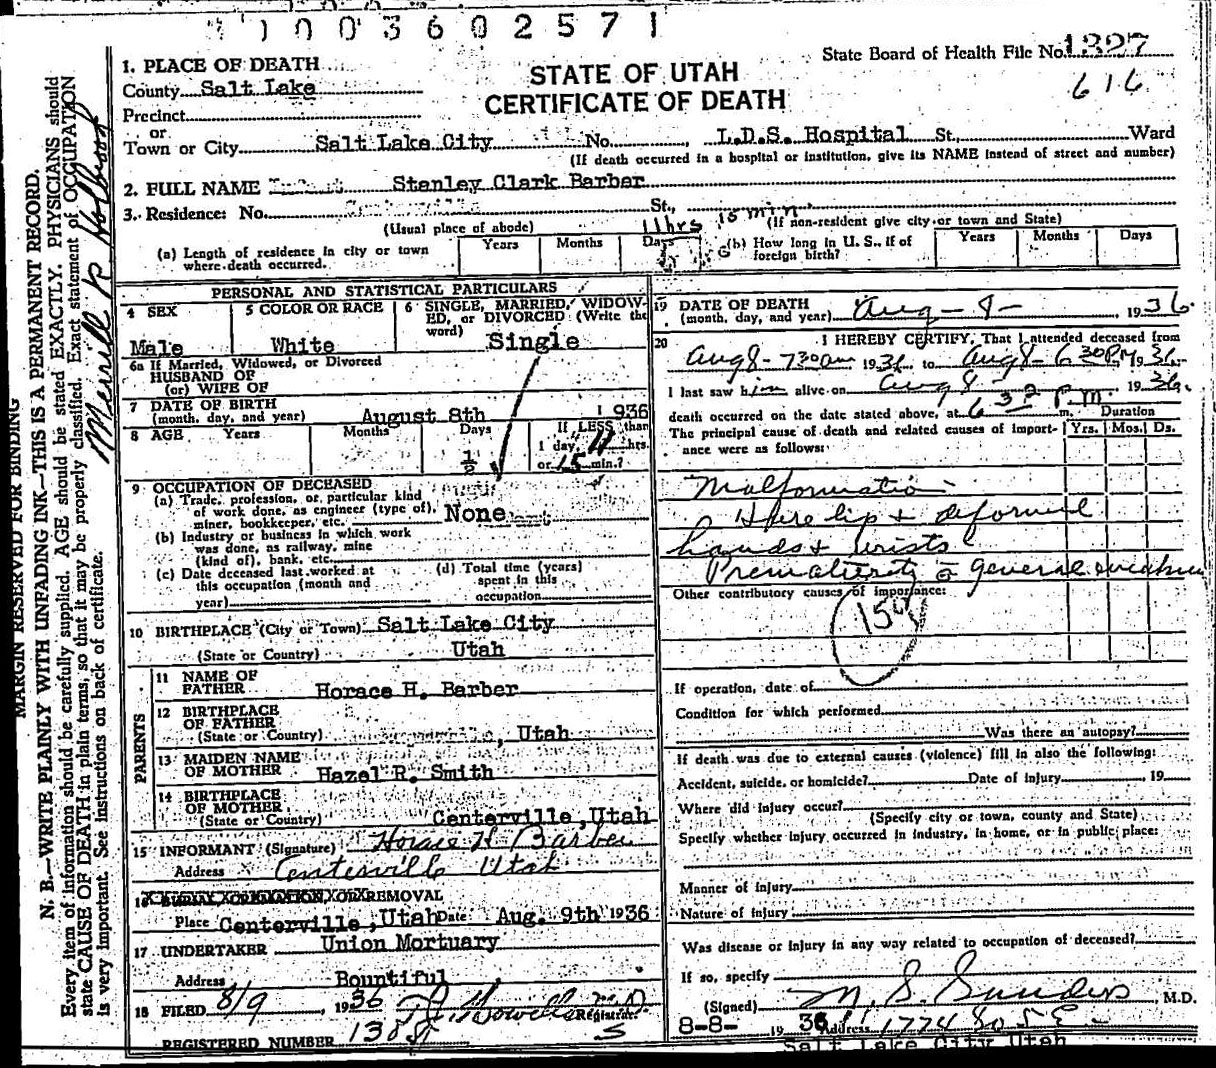 1003602571
State Board of Health File No. 1327
616
STATE OF UTAH
CERTIFICATE OF DEATH
1. PLACE OF DEATH
County Salt Lake
Precinct
or
Town or City Salt Lake City No. L.D.S. Hospital St., Ward
(If death occurred in a hospital or institution, give its NAME instead of street and number)
2. FULL NAME Infant Stanley Clark Barber
3. Residence: No. Centerville St.,
(Usual place of abode) 11 hrs 15 min. (If non-resident give city or town and State)
(a) Length of residence in city or town where death occurred. Years Months Days
(b) How long in U. S., if of foreign birth? Years Months Days
PERSONAL AND STATISTICAL PARTICULARS
4 SEX
Male
5 COLOR OR RACE
White
6 SINGLE, MARRIED, WIDOW-
ED, or DIVORCED (Write the
word)
Single
6a If Married, Widowed, or Divorced
HUSBAND OF
(or) WIFE OF
7 DATE OF BIRTH
(month, day, and year) August 8th 1936
8 AGE Years Months Days If LESS than
1/2 1 day, 11 hrs.
or 15 min.?
9 OCCUPATION OF DECEASED
(a) Trade, profession, or particular kind
of work done, as engineer (type of),
miner, bookkeeper, etc. None
(b) Industry or business in which work
was done, as railway, mine
(kind of), bank, etc.
(c) Date deceased last worked at
this occupation (month and
year)
(d) Total time (years)
spent in this
occupation
10 BIRTHPLACE (City or Town) Salt Lake City
(State or Country) Utah
PARENTS
11 NAME OF
FATHER Horace H. Barber
12 BIRTHPLACE
OF FATHER
(State or Country) , Utah
13 MAIDEN NAME
OF MOTHER Hazel R. Smith
14 BIRTHPLACE
OF MOTHER
(State or Country) Centerville, Utah
15 INFORMANT (Signature) Horace H Barber
Address Centerville Utah
16 BURIAL, CREMATION, OR REMOVAL
Place Centerville, Utah Date Aug. 9th 1936
17 UNDERTAKER Union Mortuary
Address Bountiful
18 FILED 8/9, 1936 Howells M.D. Registrar.
REGISTERED NUMBER 1308
19 DATE OF DEATH
(month, day, and year) Aug - 8 - , 1936
20 I HEREBY CERTIFY, That I attended deceased from
Aug 8 - 7 30 am 1936 to Aug 8 - 6 30 P.M. 1936
I last saw him alive on Aug 8 - 1936
death occurred on the date stated above, at 6 32 P.m. Duration
The principal cause of death and related causes of import-
ance were as follows: Yrs. Mos. Ds.
Malformation
Hare lip + deformed
hands + wrists
Prematurity c̄ general weakness
Other contributory causes of importance:
If operation, date of
Condition for which performed
Was there an autopsy?
If death was due to external causes (violence) fill in also the following:
Accident, suicide, or homicide? Date of injury , 19
Where did injury occur?
(Specify city or town, county and State)
Specify whether injury occurred in industry, in home, or in public place:
Manner of injury
Nature of injury
Was disease or injury in any way related to occupation of deceased?
If so, specify
(Signed) M. S. Sanders, M.D.
8-8- 1936 Address 1774 So 5 E -
Salt Lake City Utah
MARGIN RESERVED FOR BINDING
N. B.—WRITE PLAINLY WITH UNFADING INK—THIS IS A PERMANENT RECORD.
Every item of information should be carefully supplied. AGE should be stated EXACTLY. PHYSICIANS should
state CAUSE OF DEATH in plain terms, so that it may be properly classified. Exact statement of OCCUPATION
is very important. See instructions on back of certificate.
Merrill R Holbrook